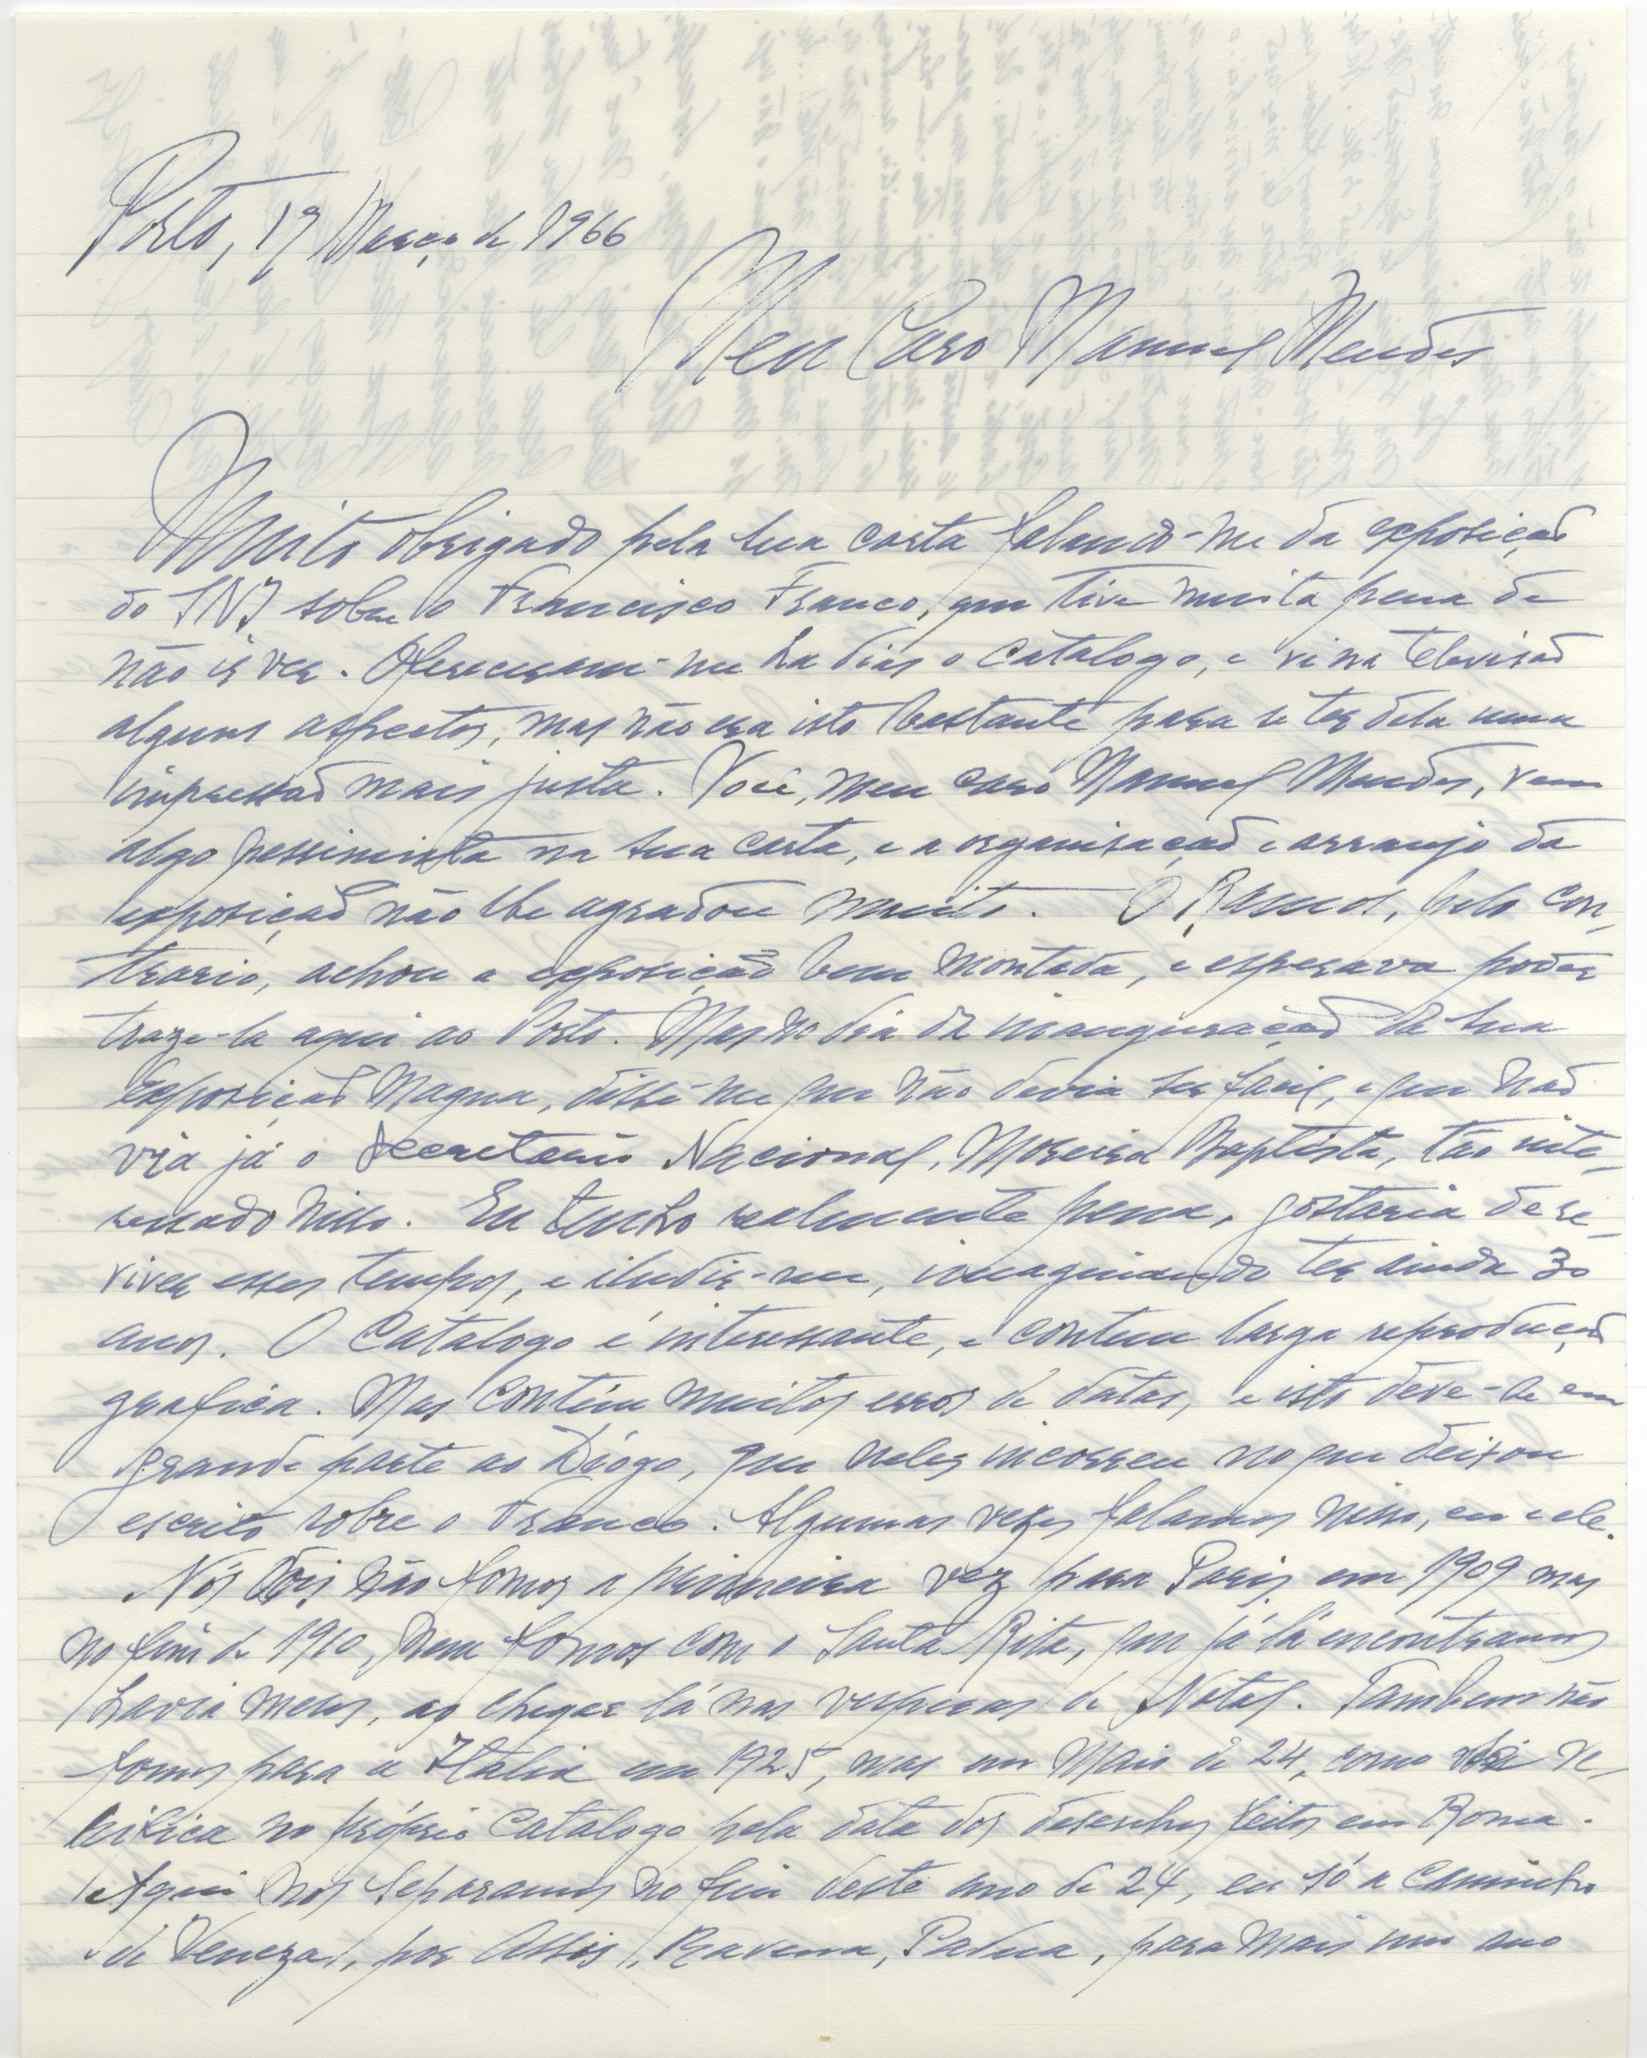 Porto, 19 Março de 1966
Meu Caro Manuel Mendes
Muito obrigado pela sua carta falando-me da exposição
do SNI sobre o Francisco Franco, que tive muita pena de
não ir ver. Ofereceram-me ha dias o catalogo, e vi na televisão
alguns aspectos, mas não era isto bastante para se ter dela uma
impressão mais justa. Você, meu caro Manuel Mendes, vem
algo pessimista na sua carta, e a organisação e arranjo da
exposição não lhe agradou muito. — O Ramos, pelo con-
trario, achou a exposição bem montada, e esperava poder
traze-la aqui ao Porto. Mas no dia da inauguração da sua
Exposição Magna, disse-me que não devia ser facil, e que não
via já o Secretario Nacional, Moreira Baptista, tão inte-
ressado nisso. Eu tenho realmente pena, gostaria de re-
viver esses tempos, e iludir-me, imaginando ter ainda 30
anos. O Catálogo é interessante, e contem larga reprodução
grafica. Mas contém muitos erros de datas, e isto deve-se em
grande parte ao Diogo, que neles incorreu no que deixou
escrito sobre o Franco. Algumas vezes falamos nisso, eu e ele.
Nós dois não fomos a primeira vez para Paris em 1909 mas
no fim de 1910, nem fomos com o Santa Rita, que já lá encontramos
havia meses, ao chegar lá nas vesperas de Natal. Tambem não
fomos para a Italia em 1925, mas em Maio de 24, como se ve-
rifica no próprio Catalogo pela data dos desenhos feitos em Roma.
Aqui nos separamos no fim deste ano de 24, eu só a caminho
de Veneza, por Assis, Ravena, Padua, para mais um ano